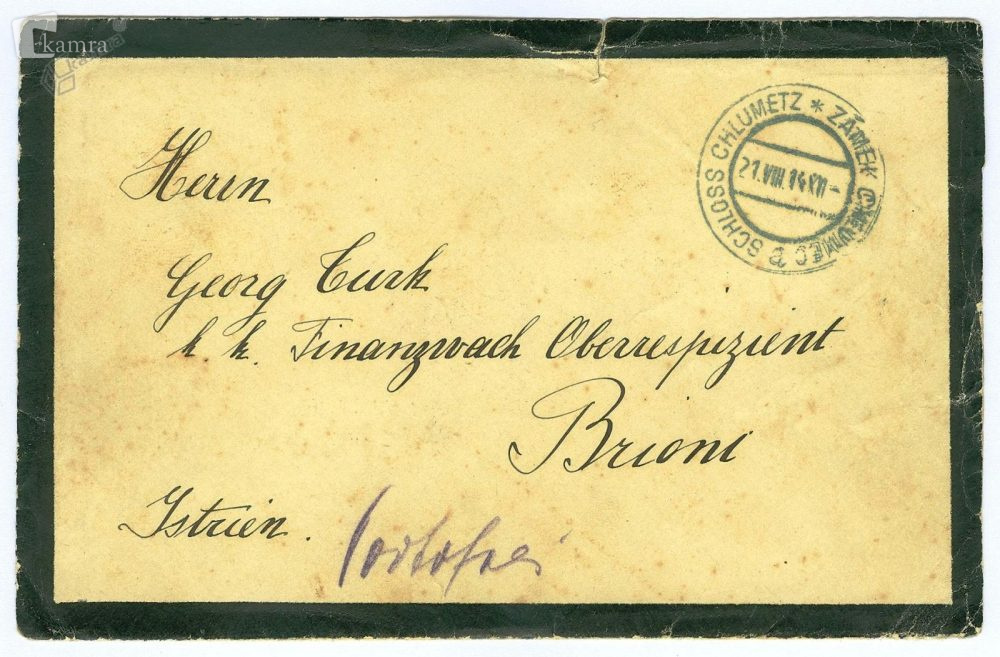 kamra
SCHLOSS CHLUMETZ * ZÁMEK CHLUMEC
21.VIII.14 XII-
Herrn
Georg Turk
k. k. Finanzwach Oberrespizient
Brioni
Istrien.
Portofrei